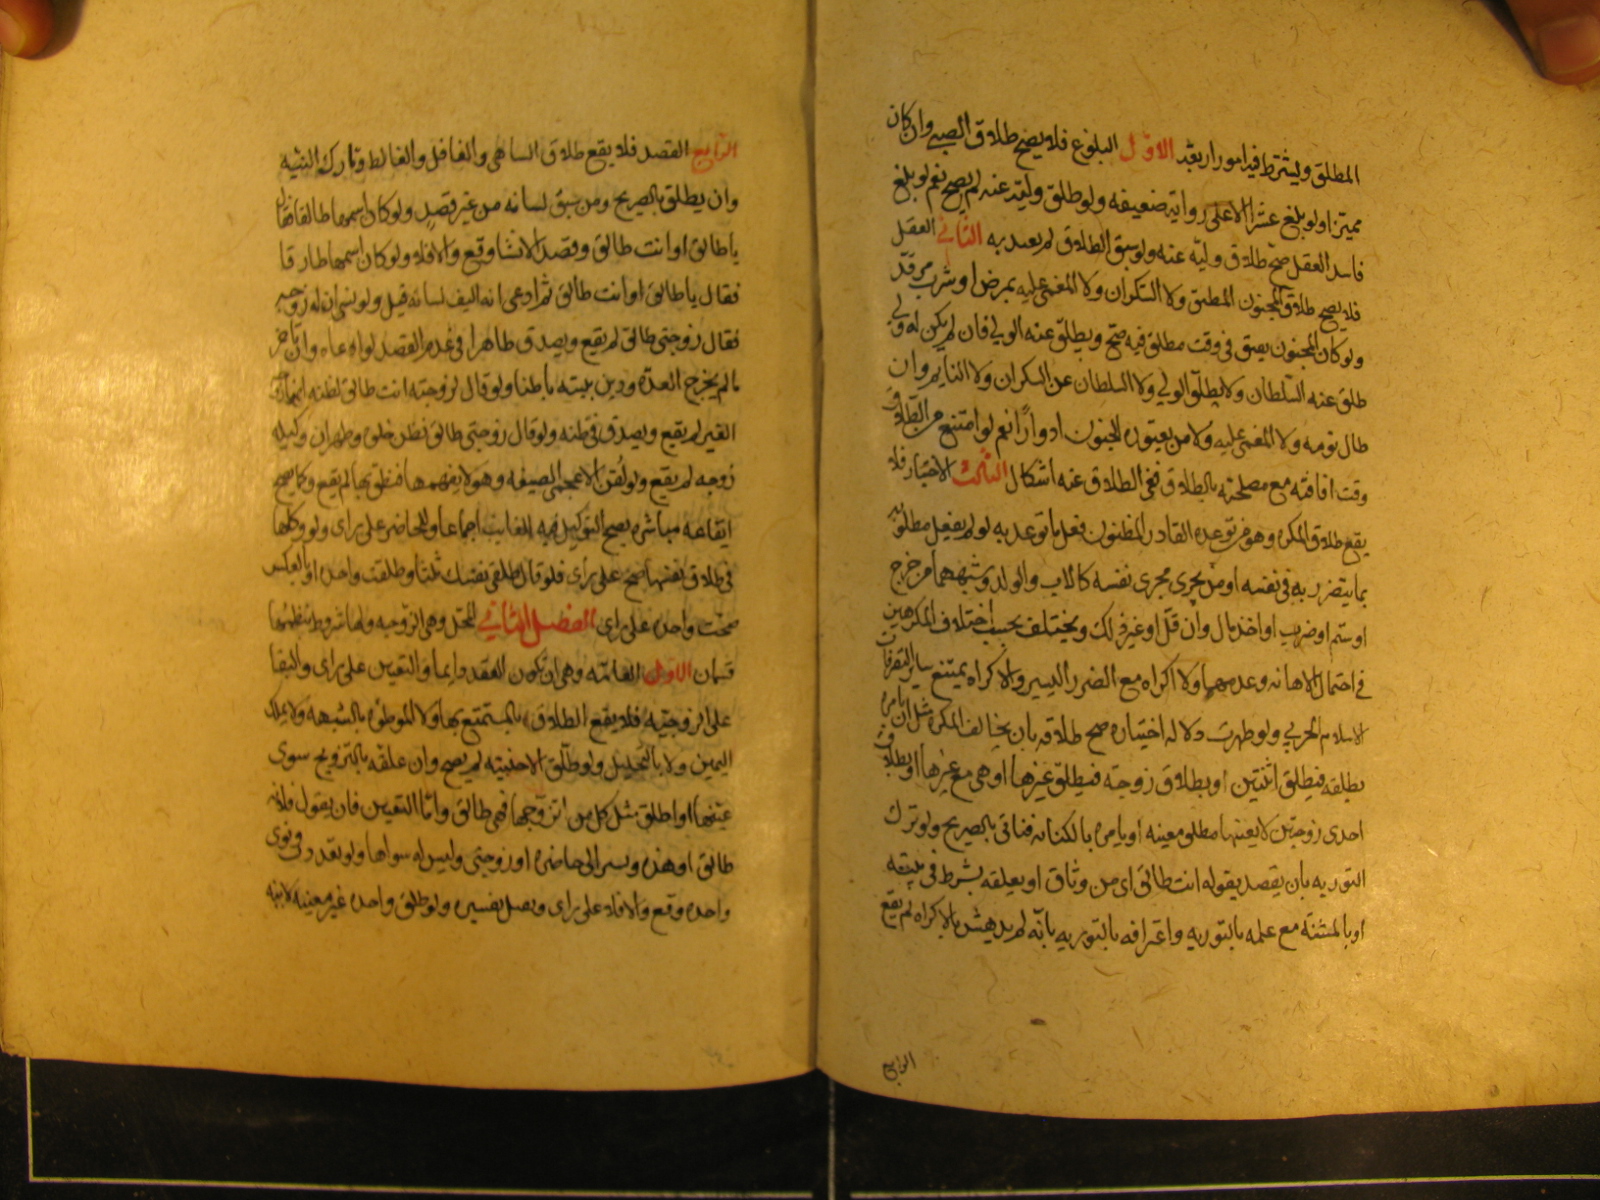 المطلق ويشترط فيه امور اربعة الاول البلوغ فلا يصح طلاق الصبي وان كان
مميزا ولو بلغ عشرا الاعلى رواية ضعيفه ولو طلق وليه عنه لم يصح نعم لو بلغ
فاسد العقل صح طلاق وليه عنه ولو سبق الطلاق لم يعتد به الثاني العقل
فلا يصح طلاق المجنون المطبق ولا السكران ولا المغمى عليه بمرض او شرب مرقد
ولو كان المجنون يفيق في وقت فطلق فيه صح ويطلق عنه الولي فان لم يكن له ولي
طلق عنه السلطان ولا يطلق الولي ولا السلطان عن السكران ولا النايم وان
طال نومه ولا المغمى عليه ولا من يعتوره الجنون ادوارا نعم لو امتنع من الطلاق
وقت افاقته مع مصلحته بالطلاق ففي الطلاق عنه اشكال الثالث الاختيار فلا
يقع طلاق المكره وهو من توعده القادر المظنون فعل ما توعد به لو لم يفعل مطلوبه
بما يتضرر به في نفسه او من يجرى مجرى نفسه كالاب والولد وشبههما من جرح
او ستم او ضرب او اخذ مال وان قل او غير ذلك ويختلف بحسب اختلاف المكرهين
في احتمال الاهانه وعدمها ولا اكراه مع الضرر اليسير والاكراه يمنع ساير التصرفات
الا اسلام الحربي ولو ظهرت دلاله اختياره صح طلاقه بان يخالف المكره مثل ان يامره
بطلقه فيطلق اثنتين او بطلاق زوجته فيطلق غيرها او هي مع غيرها او بطلاق
احدى زوجتين لا بعينها فطلق معينه او يامره بالكنايه فياتي بالصريح ولو ترك
التوريه بان يقصد بقوله انت طالق اى من وثاق او يعلقه بشرط في نيته
او بالمشيئه مع علمه بالتوريه واعترافه بالتوريه بانه لم يدهش بالاكراه لم يقع
الرابع
الرابع القصد فلا يقع طلاق الساهي والغافل والغالط وتارك النيه
وان يطلق بالصريح ومن سبق لسانه من غير قصد ولو كان اسمها طالقا فقال
يا طالق او انت طالق وقصد الانشا وقع والا فلا ولو كان اسمها طارقا
فقال يا طالق او انت طالق ثم ادعى انه التف لسانه قبل ولو نسي ان له زوجه
فقال زوجتي طالق لم يقع ويصدق ظاهرا في عدم القصد لو ادعاه وان تاخر
ما لم يخرج العده ودين بنيته باطنا ولو قال لزوجته انت طالق لظنه انها زوجة
الغير لم يقع ويصدق في ظنه ولو قال زوجتي طالق بظن خلوه وظهران وكيله
زوجه لم يقع ولو لقن الاعجمي الصيغه وهو لا يفهمها فنطق بها لم يقع وكما يصح
ايقاعه مباشره يصح التوكيل فيه للغايب اجماعا وللحاضر على راى ولو وكلها
في طلاق نفسها صح على راى فلو قال طلقي نفسك ثلثا فطلقت واحده او بالعكس
صحت واحده على راى الفصل الثاني المحل وهي الزوجه ولها شروط ينظمها
قسمان الاول العامه وهي ان تكون العقد دايما والتعيين على راى والبقا
على الزوجيه فلا يقع الطلاق بالمستمتع بها ولا الموطوه بالشبهه ولا بملك
اليمين ولا بالتحليل ولو طلق الاجنبيه لم يصح وان علقه بالتزويج سوى
عينها او اطلق مثل كل من اتزوجها فهي طالق واما التعيين فان يقول فلانه
طالق او هذه ويسير الى حاضره او زوجتي وليس له سواها ولو تعددت ونوى
واحده وقع والا فلا على راى ويقبل تفسيره ولو طلق واحده غير معينه لا بنيه